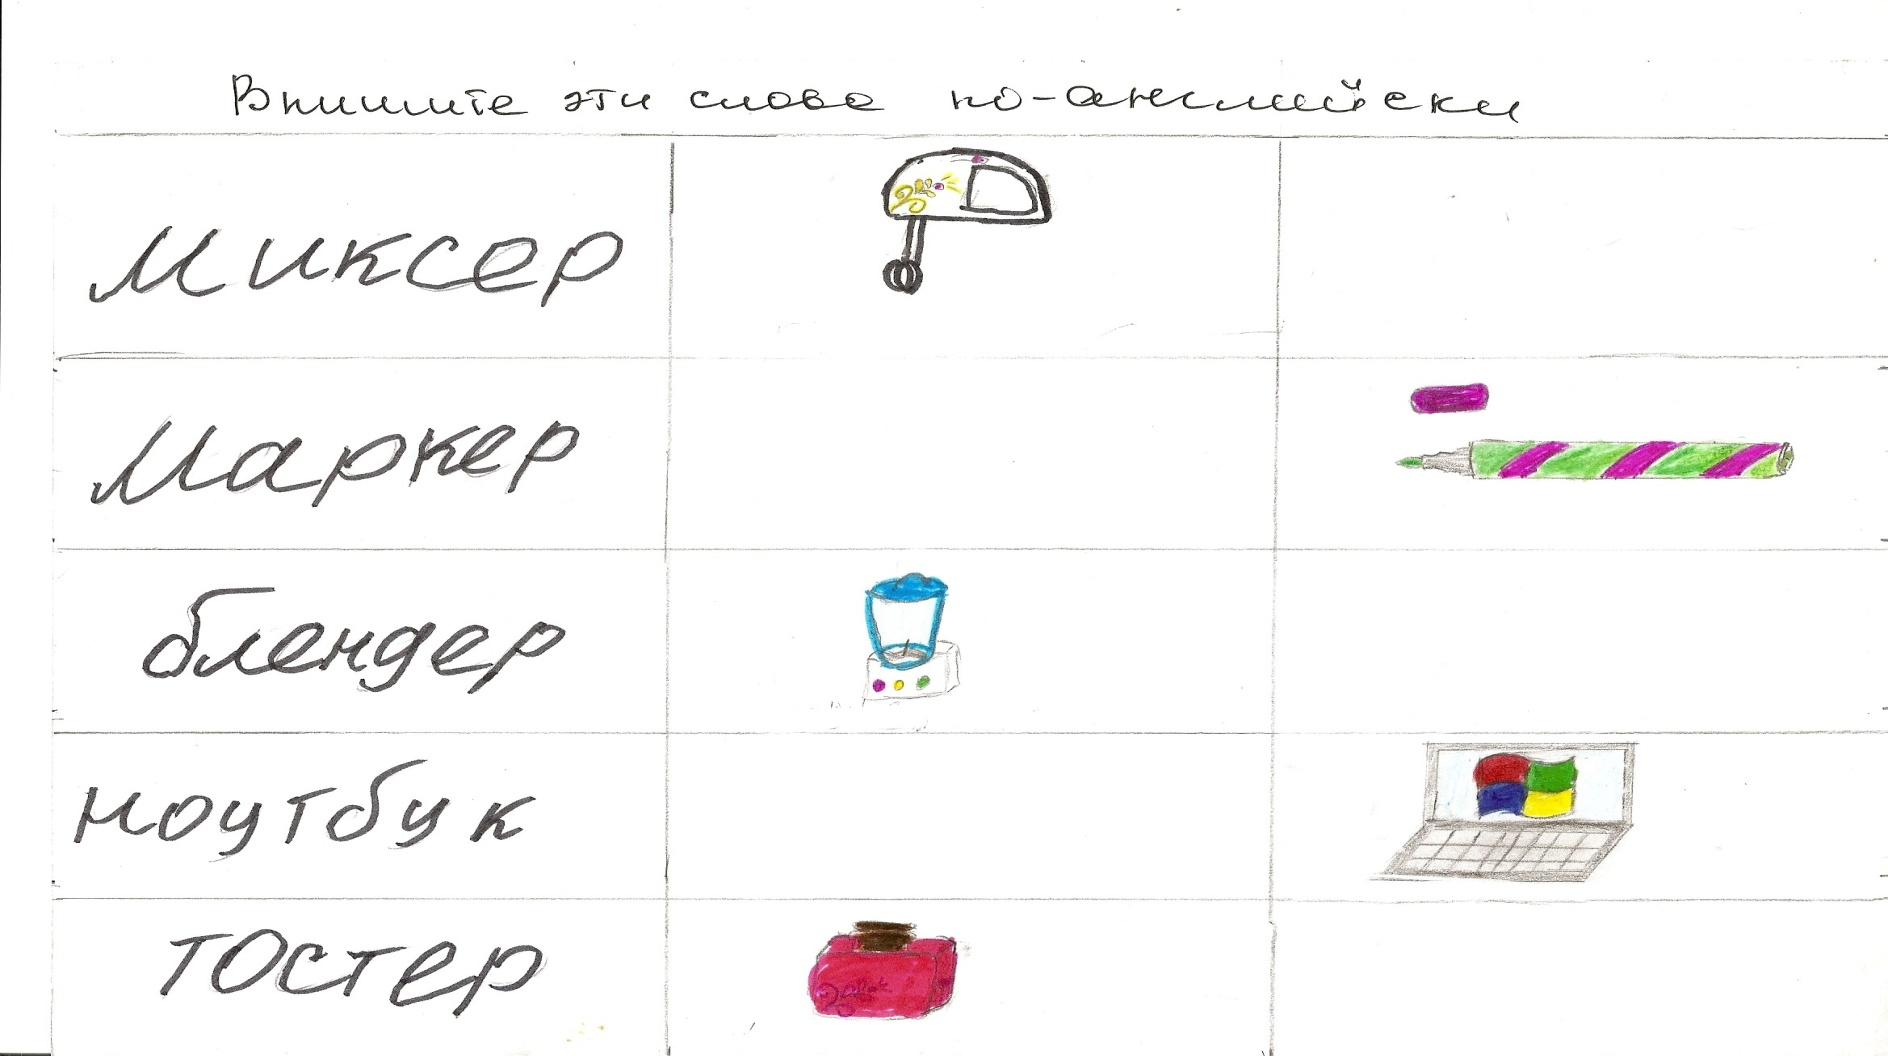 Впишите эти слова по-английски
миксер
маркер
блендер
ноутбук
тостер